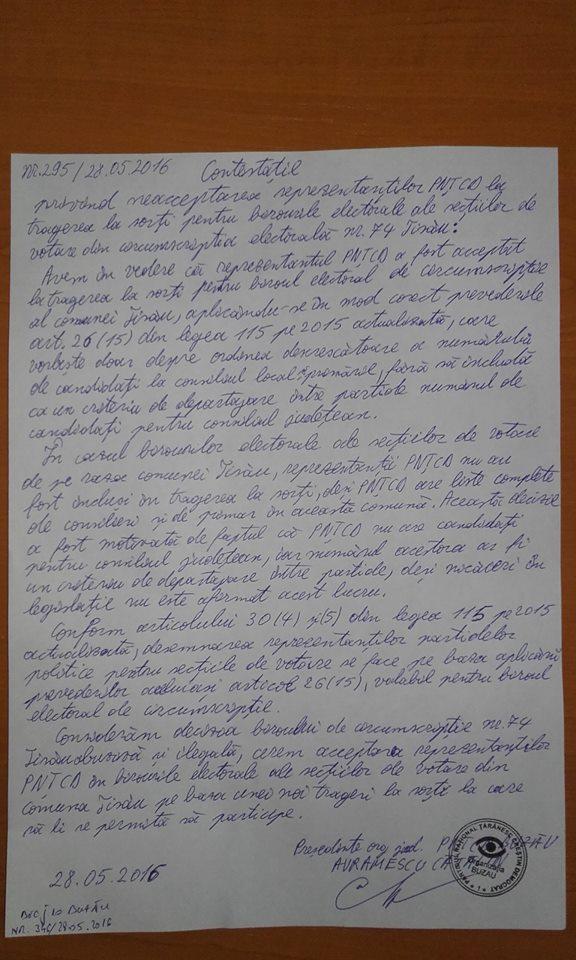 Nr. 295/28.05.2016 Contestație
privind neacceptarea reprezentanților PNȚCD la
tragerea la sorți pentru birourile electorale ale secțiilor de
votare din circumscripția electorală nr. 74 Tisău:
Avem în vedere că reprezentantul PNȚCD a fost acceptat
la tragerea la sorți pentru biroul electoral de circumscripție
al comunei Tisău, aplicându-se în mod corect prevederile
art. 26(15) din legea 115 pe 2015 actualizată, care
vorbește doar despre ordinea descrescătoare a numărului
de candidați la consiliul local și primărie, fără să includă
ca un criteriu de departajare între partide numărul de
candidați pentru consiliul județean.
În cazul birourilor electorale ale secțiilor de votare
de pe raza comunei Tisău, reprezentanții PNȚCD nu au
fost incluși în tragerea la sorți, deși PNȚCD are liste complete
de consilieri și de primar în această comună. Această decizie
a fost motivată de faptul că PNȚCD nu are candidați
pentru consiliul județean, iar numărul acestora ar fi
un criteriu de departajare între partide, deși nicăieri în
legislație nu este afirmat acest lucru.
Conform articolului 30(4) și (5) din legea 115 pe 2015
actualizată, desemnarea reprezentanților partidelor
politice pentru secțiile de votare se face pe baza aplicării
prevederilor aceluiași articol 26(15), valabil pentru biroul
electoral de circumscripție.
Considerăm decizia biroului de circumscripție nr. 74
Tisău abuzivă și ilegală, cerem acceptarea reprezentanților
PNȚCD în birourile electorale ale secțiilor de votare din
comuna Tisău pe baza unei noi trageri la sorți la care
să li se permită să participe.
Președinte org. jud. BUZĂU
AVRAMESCU
PARTIDUL NAȚIONAL ȚĂRĂNESC CREȘTIN DEMOCRAT
Organizația
BUZĂU
28.05.2016
BECJ 10 BUZĂU
NR. 346/28.05.2016